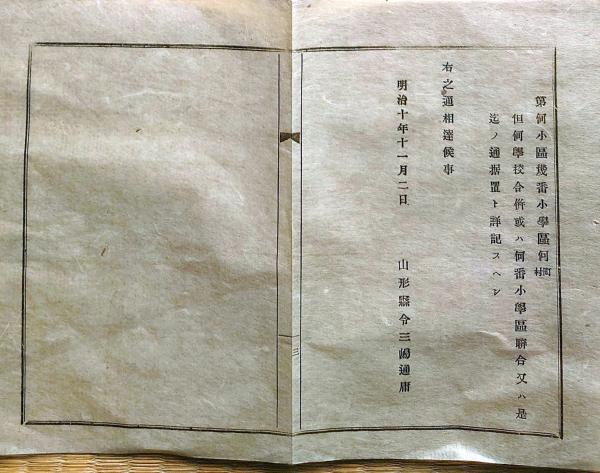 第何小區幾番小學區何町村
但何學校合併或ハ何番小學區聯合又ハ是
迄ノ通据置ト詳記スヘシ
右之通相達候事
明治十年十一月二日
山形縣令三島通庸
三